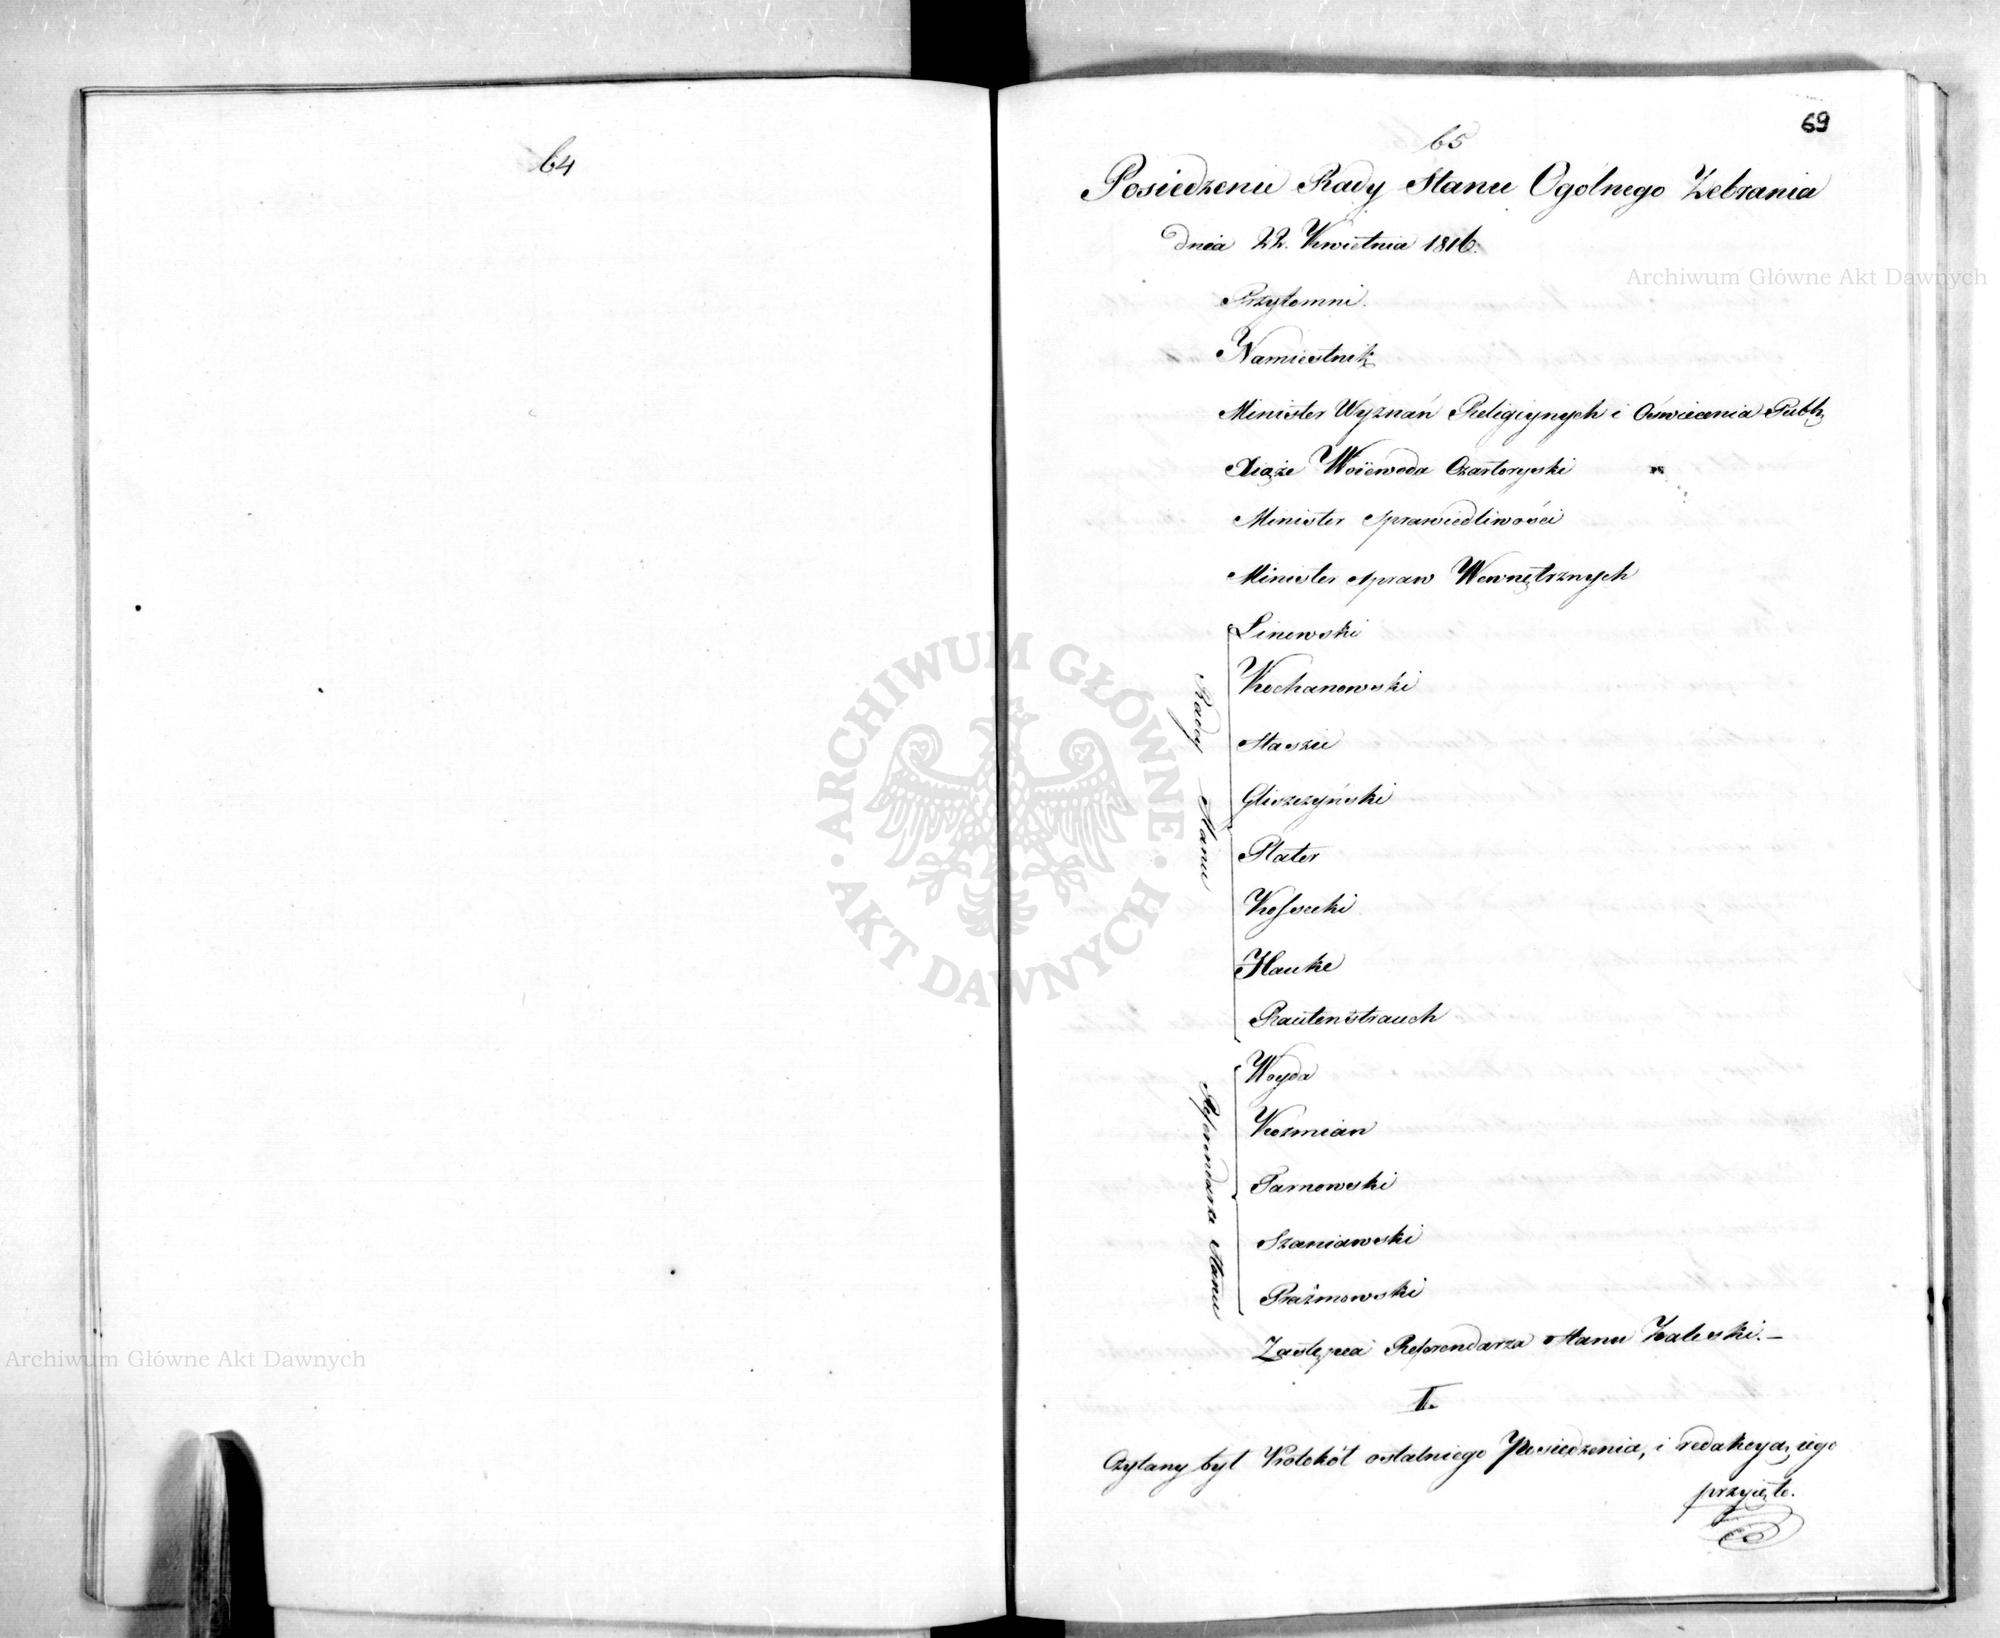 64
69
65
Posiedzenie Rady Stanu Ogólnego Zebrania
dnia 22. Kwietnia 1816.
Przytomni.
Namiestnik
Minister Wyznań Religiynych i Oświecenia Publ.
Xiąże Woiewoda Czartoryski
Minister Sprawiedliwości
Minister Spraw Wewnętrznych
Rady Stanu
Linowski
Kochanowski
Staszic
Gliszczyński
Plater
Kossecki
Hauke
Rautenstrauch
Referendarze Stanu
Woyda
Kozmian
Tarnowski
Szaniawski
Prażmowski
Zastępca Referendarza Stanu Zaleski.—
I.
Czytany był Protokół ostatniego Posiedzenia, i redakcyą iego
przyięto.
Archiwum Główne Akt Dawnych
ARCHIWUM GŁÓWNE
AKT DAWNYCH
Archiwum Główne Akt Dawnych